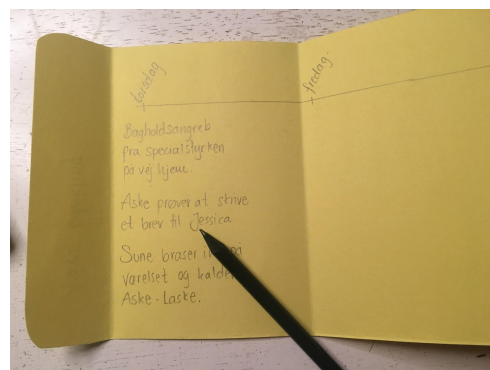 torsdag
fredag.
Bagholdsangreb
fra specialstyrken
på vej hjem.
Aske prøver at skrive
et brev til Jessica
Sune braser ind på
værelset og kalder
Aske-Laske.